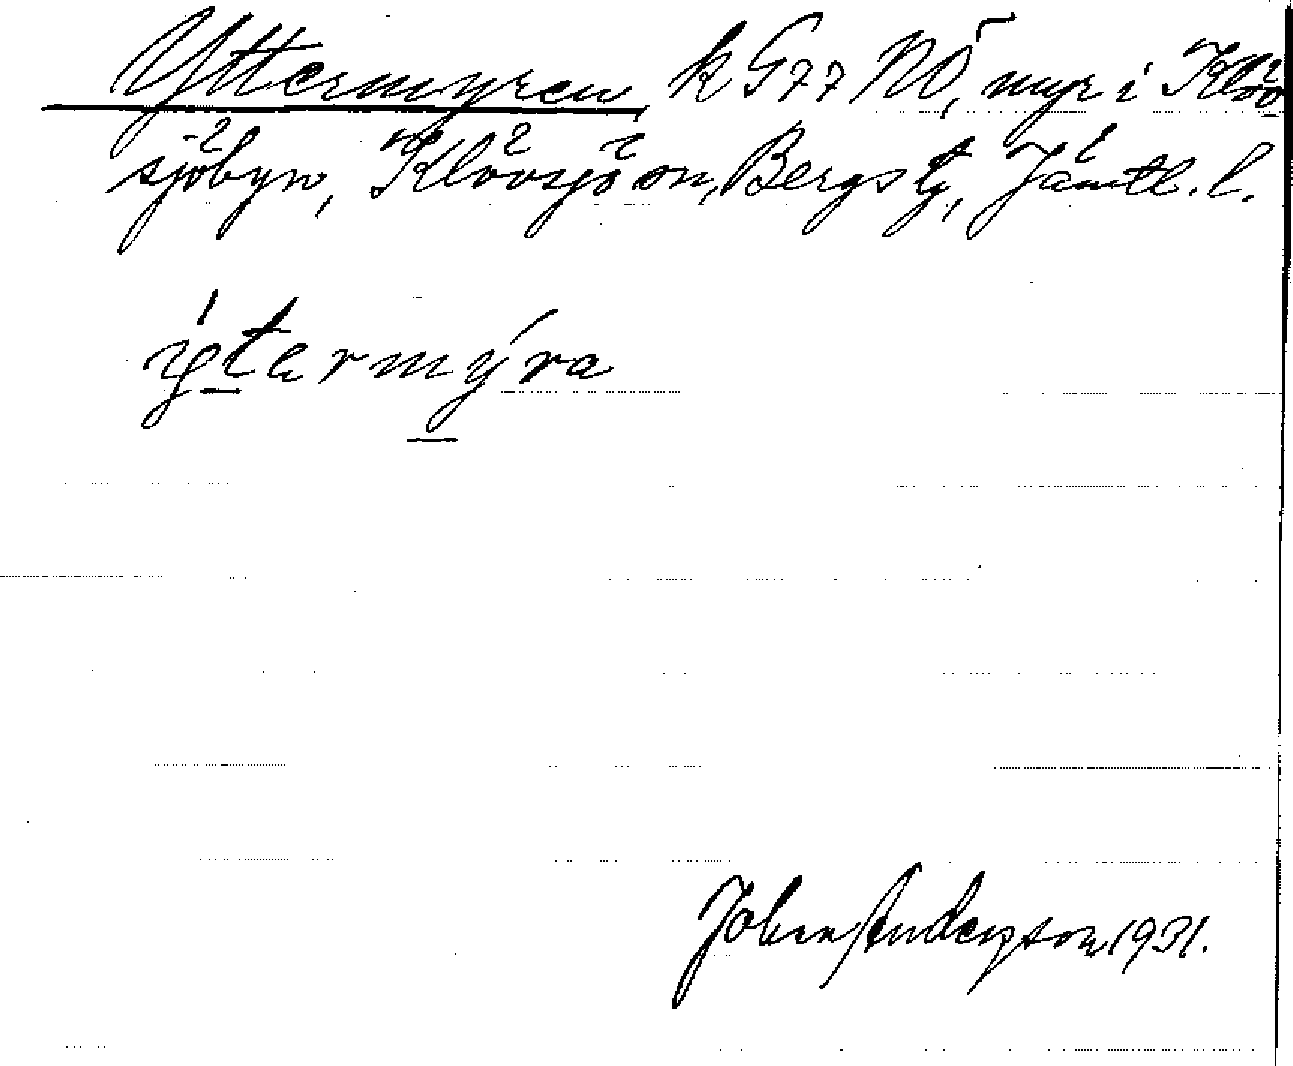 Yttermyren k G77 NÖ, myr i Klöv
sjöbyn, Klövsjö sn, Bergs tg, Jämtl. l.
ýtermýra
John Anderson 1931.